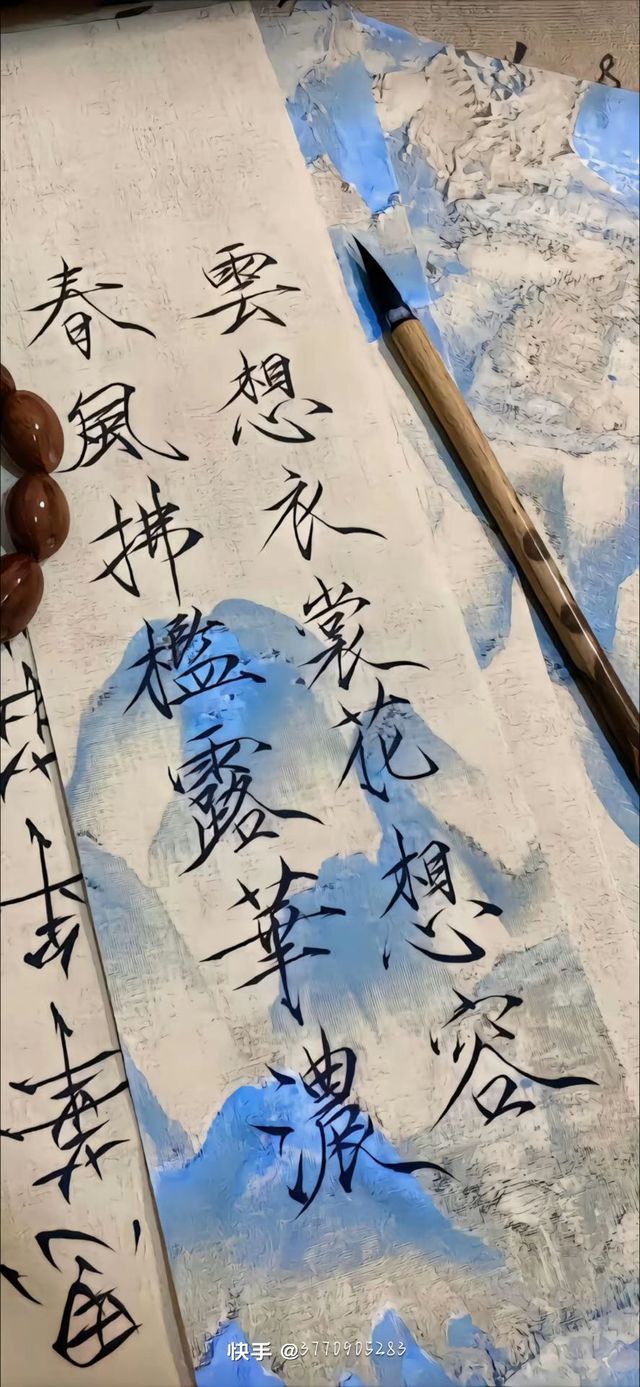 雲想衣裳花想容
春風拂檻露華濃
快手 @3770905283